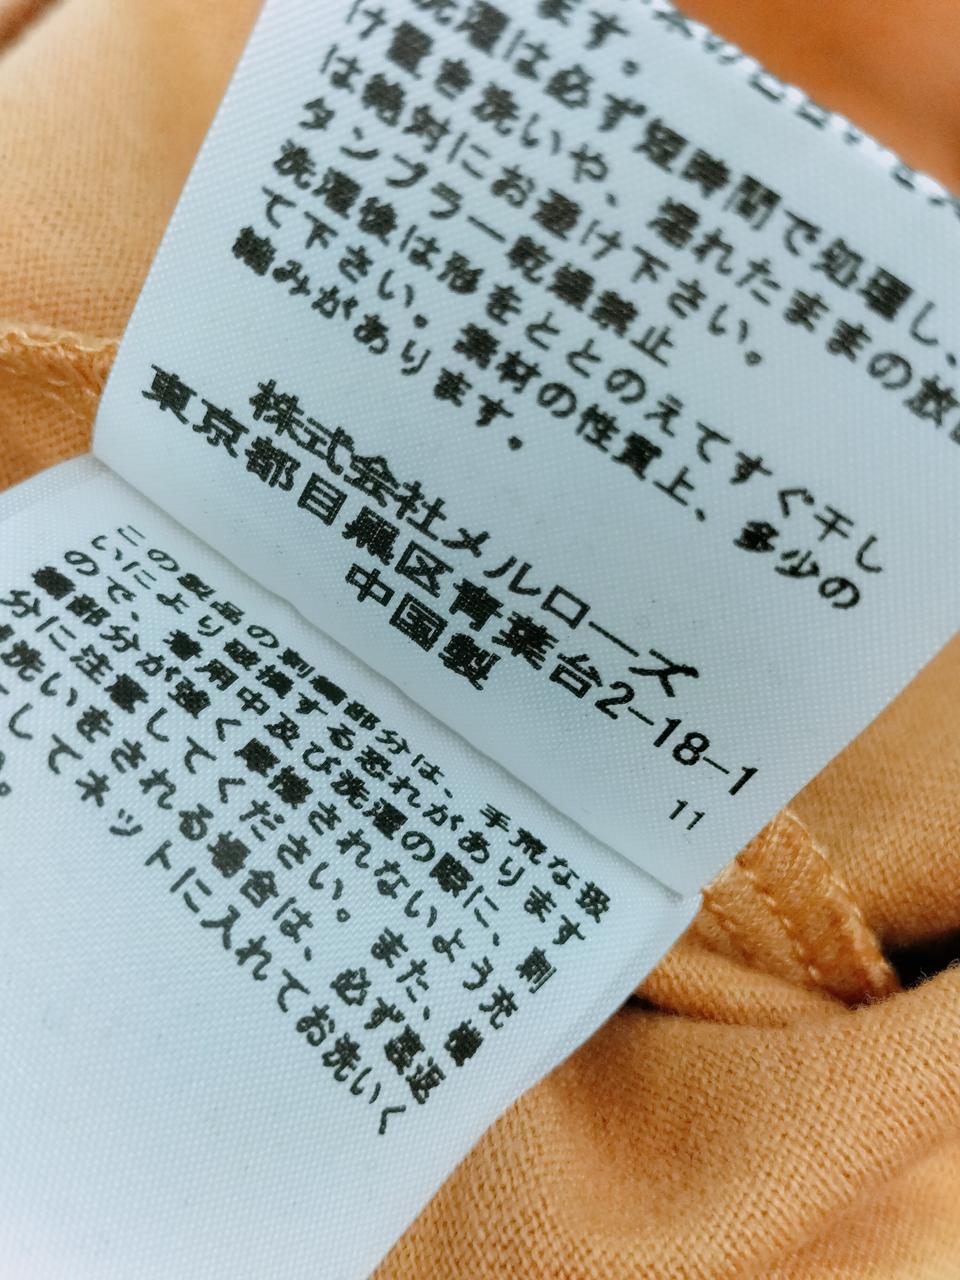 ます。
洗濯は必ず短時間で処理し、
け置き洗いや、濡れたままの放
は絶対にお避け下さい。
タンブラー乾燥禁止
洗濯後は形をととのえてすぐ干し
て下さい。素材の性質上、多少の
縮みがあります。
株式会社メルローズ
東京都目黒区青葉台2-18-1
中国製
11
この製品の刺繍部分は、手荒な扱
いにより破損する恐れがあります
ので、着用中及び洗濯の際に、刺
繍部分が強く摩擦されないよう充
分に注意してください。また、機
洗いをされる場合は、必ず裏返
してネットに入れてお洗いく